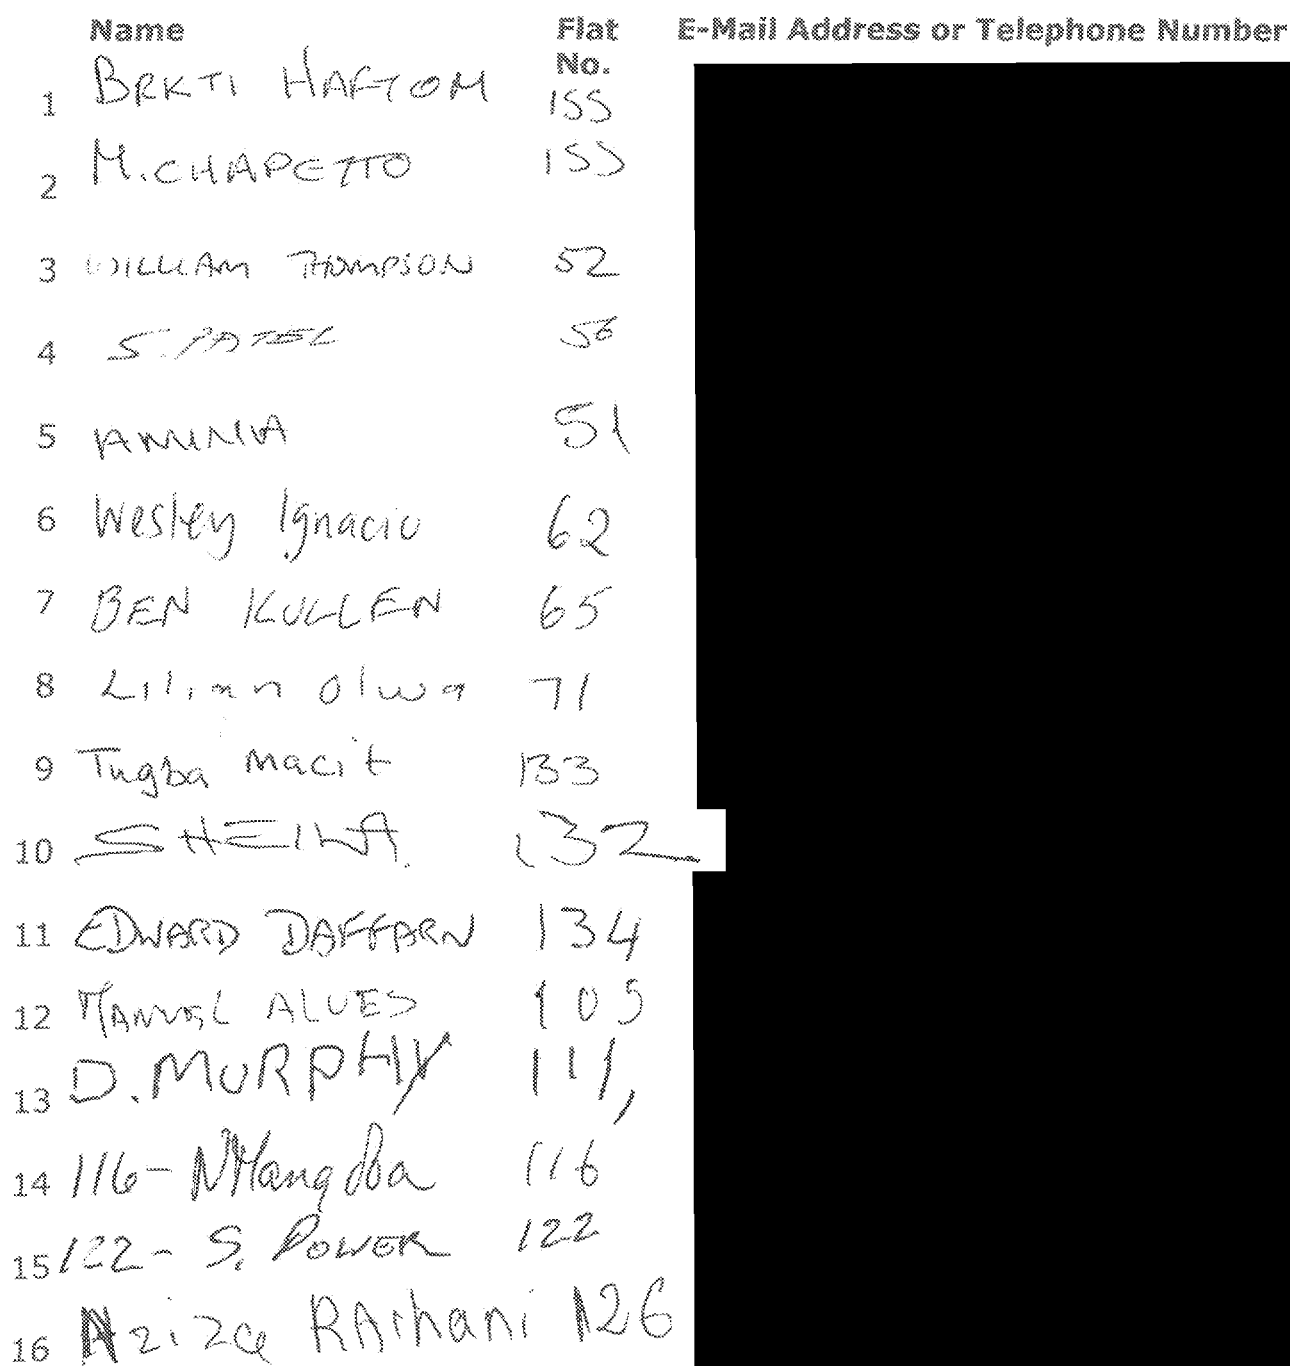 Name Flat No. E-Mail Address or Telephone Number
1 BRKTI HAFTOM 155
2 M. CHAPETTO 155
3 WILLIAM THOMPSON 52
4 S. PATEL 56
5 51
6 Wesley Ignacio 62
7 BEN KULLEN 65
8 Lilian Olwa 71
9 Tugba Macit 133
10 SHEILA 132
11 EDWARD DAFFARN 134
12 MANUEL ALVES 105
13 D. MURPHY 111,
14 116 - 116
15 122 - S. POWER 122
16 126